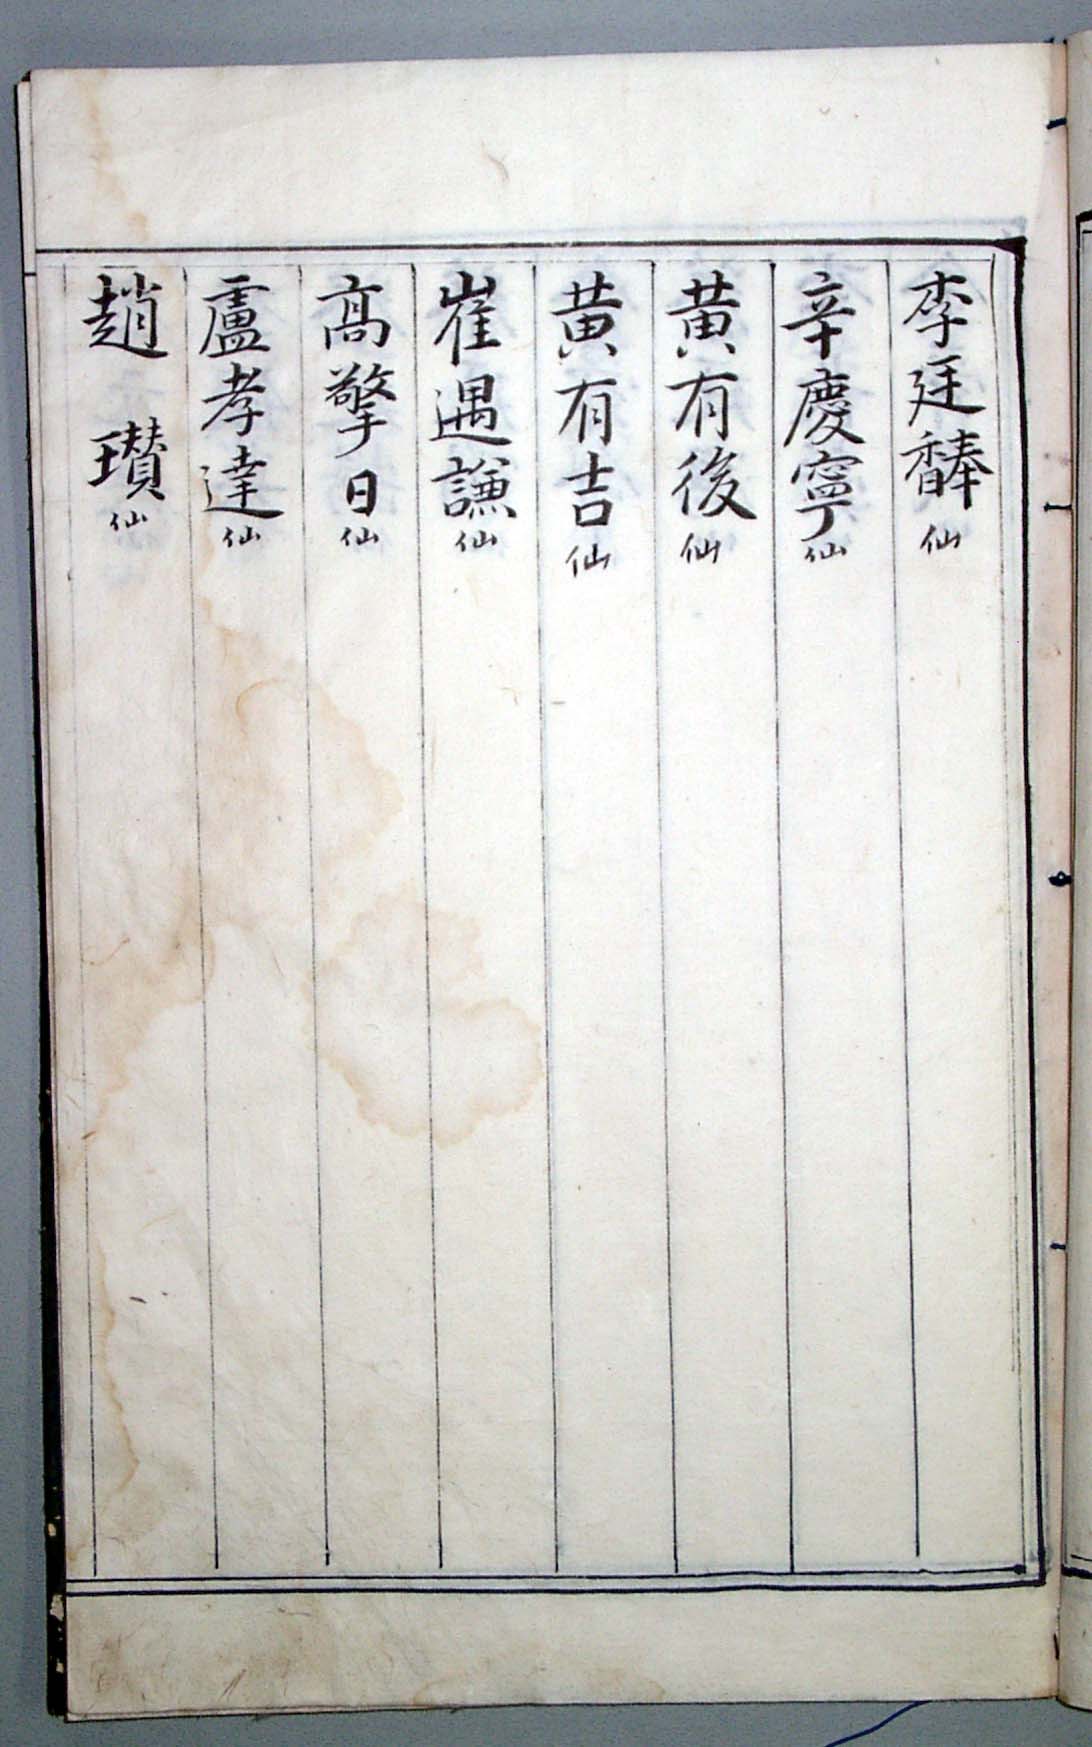 李廷馟仙
辛慶寧仙
黄有後仙
黄有吉仙
崔遇謙仙
高擎日仙
盧孝達仙
趙瓚仙